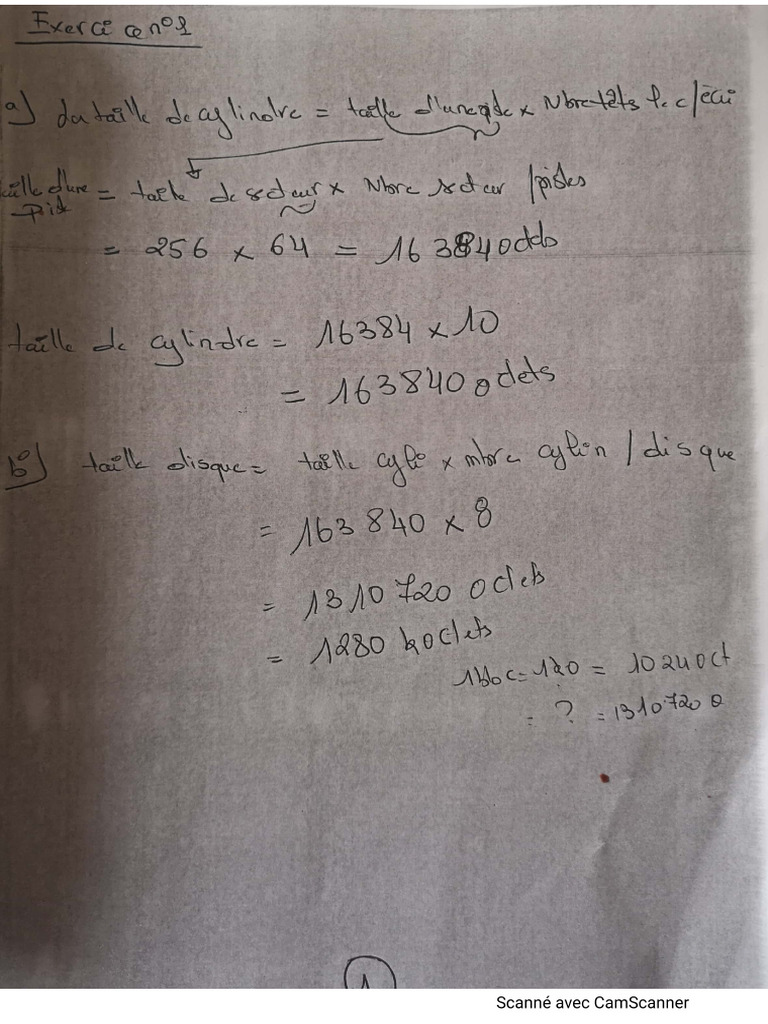 Exercice n°1
a) La taille de cylindre = taille d'une piste × Nbre têts lec/écri
taille d'une piste = taille de secteur × Nbre secteur /pistes
= 256 × 64 = 16 384 octets
taille de cylindre = 16384 × 10
= 163840 octets
b) taille disque = taille cyli × nbre cylin / disque
= 163 840 × 8
= 1310 720 octets
= 1280 koctets
1bloc = 1ko = 1024 oct
= ? = 1310720 o
1
Scanné avec CamScanner